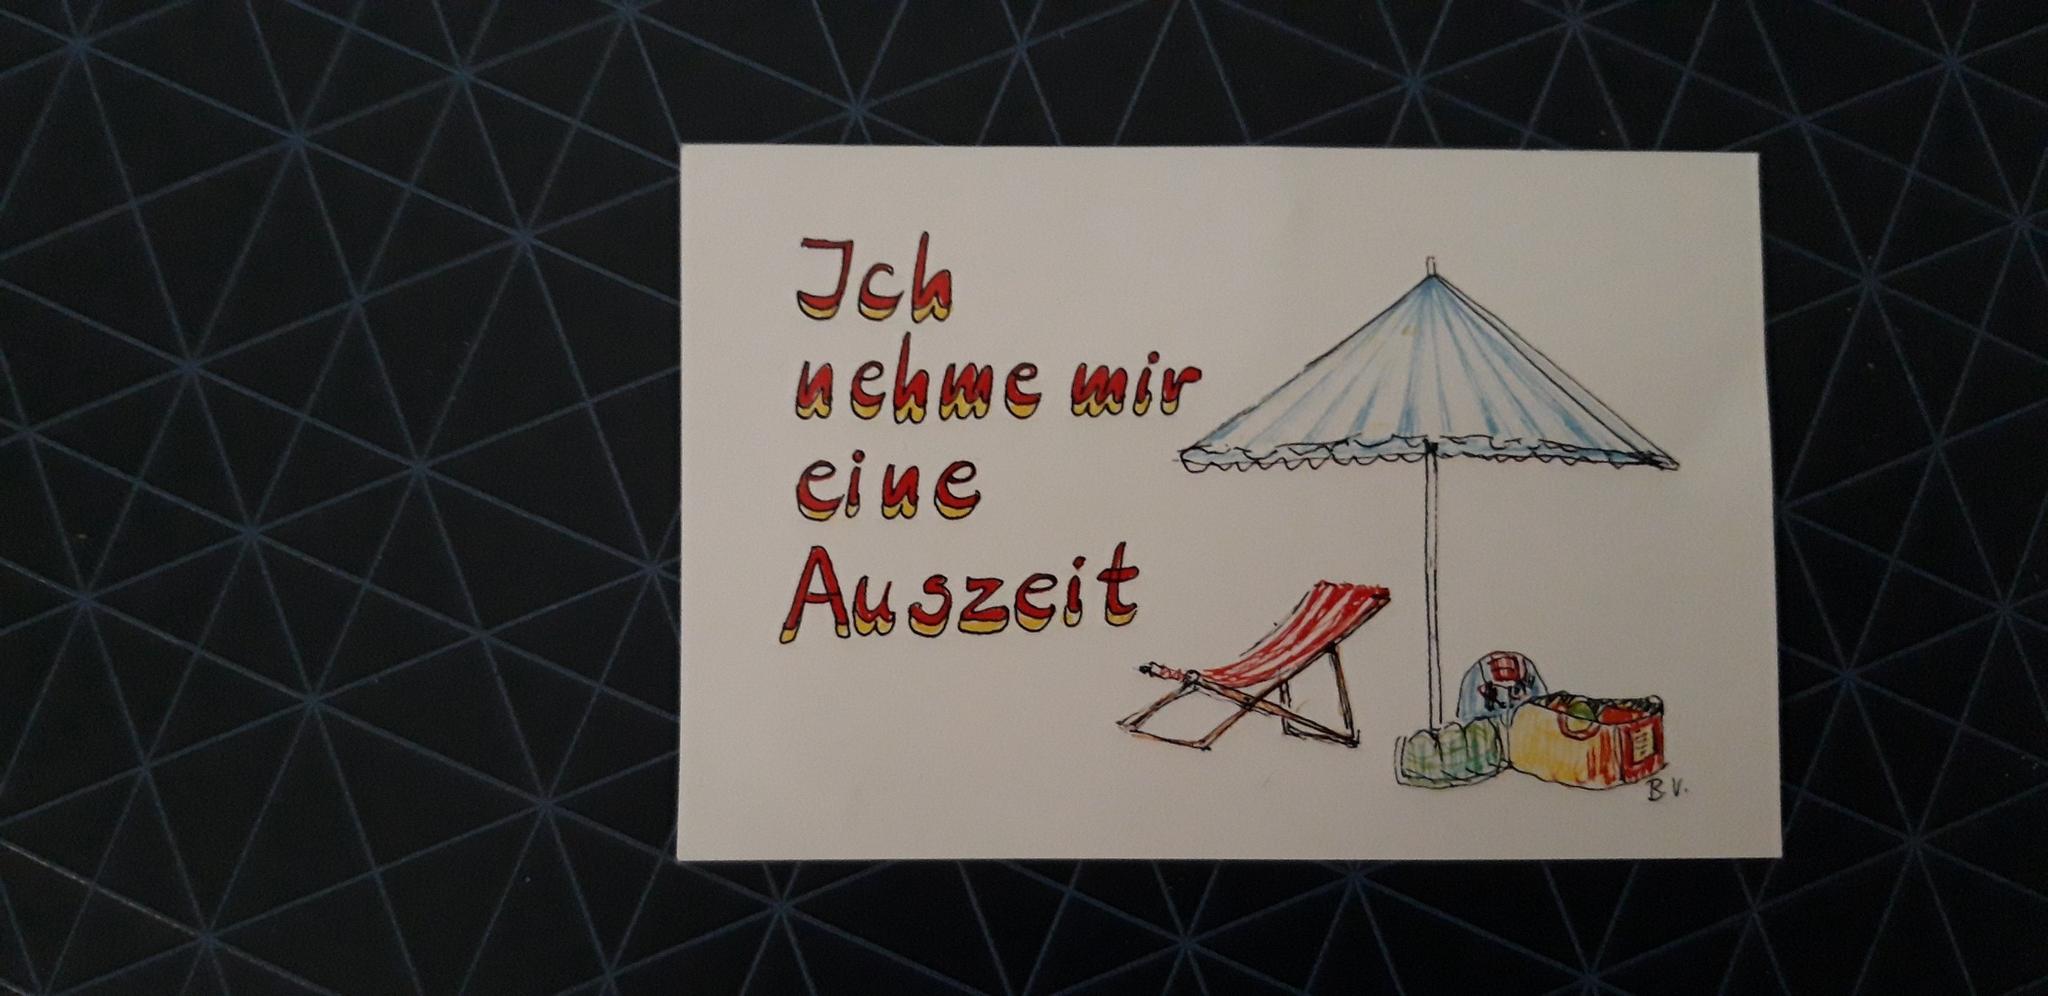 Ich
nehme mir
eine
Auszeit
B.V.